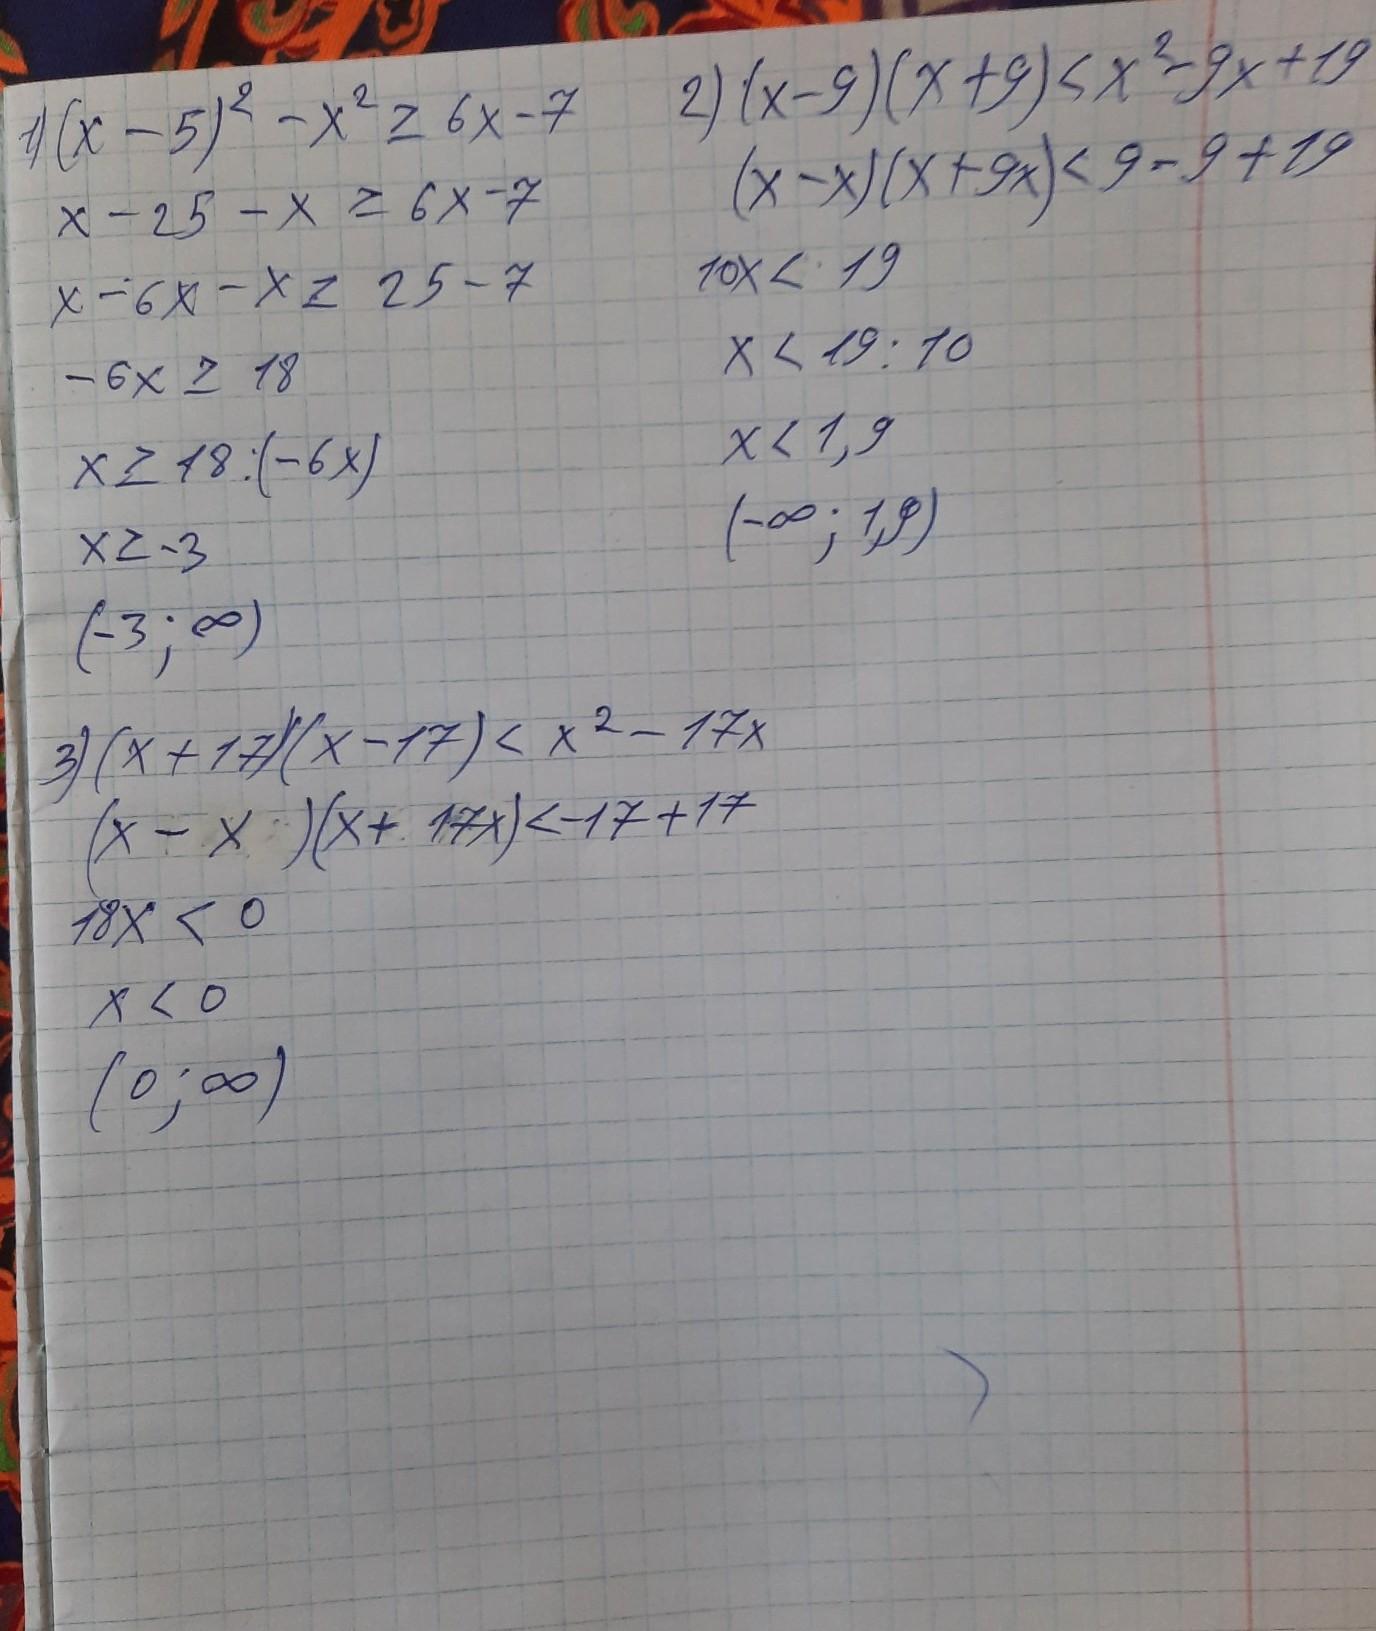 1) (x - 5)² - x² ≥ 6x - 7
x - 25 - x ≥ 6x - 7
x - 6x - x ≥ 25 - 7
-6x ≥ 18
x ≥ 18 : (-6x)
x ≥ -3
(-3; ∞)
2) (x - 9)(x + 9) < x² - 9x + 19
(x - x)(x + 9x) < 9 - 9 + 19
10x < 19
x < 19 : 10
x < 1,9
(-∞; 1,9)
3) (x + 17)(x - 17) < x² - 17x
(x - x)(x + 17x) < -17 + 17
18x < 0
x < 0
(0; ∞)